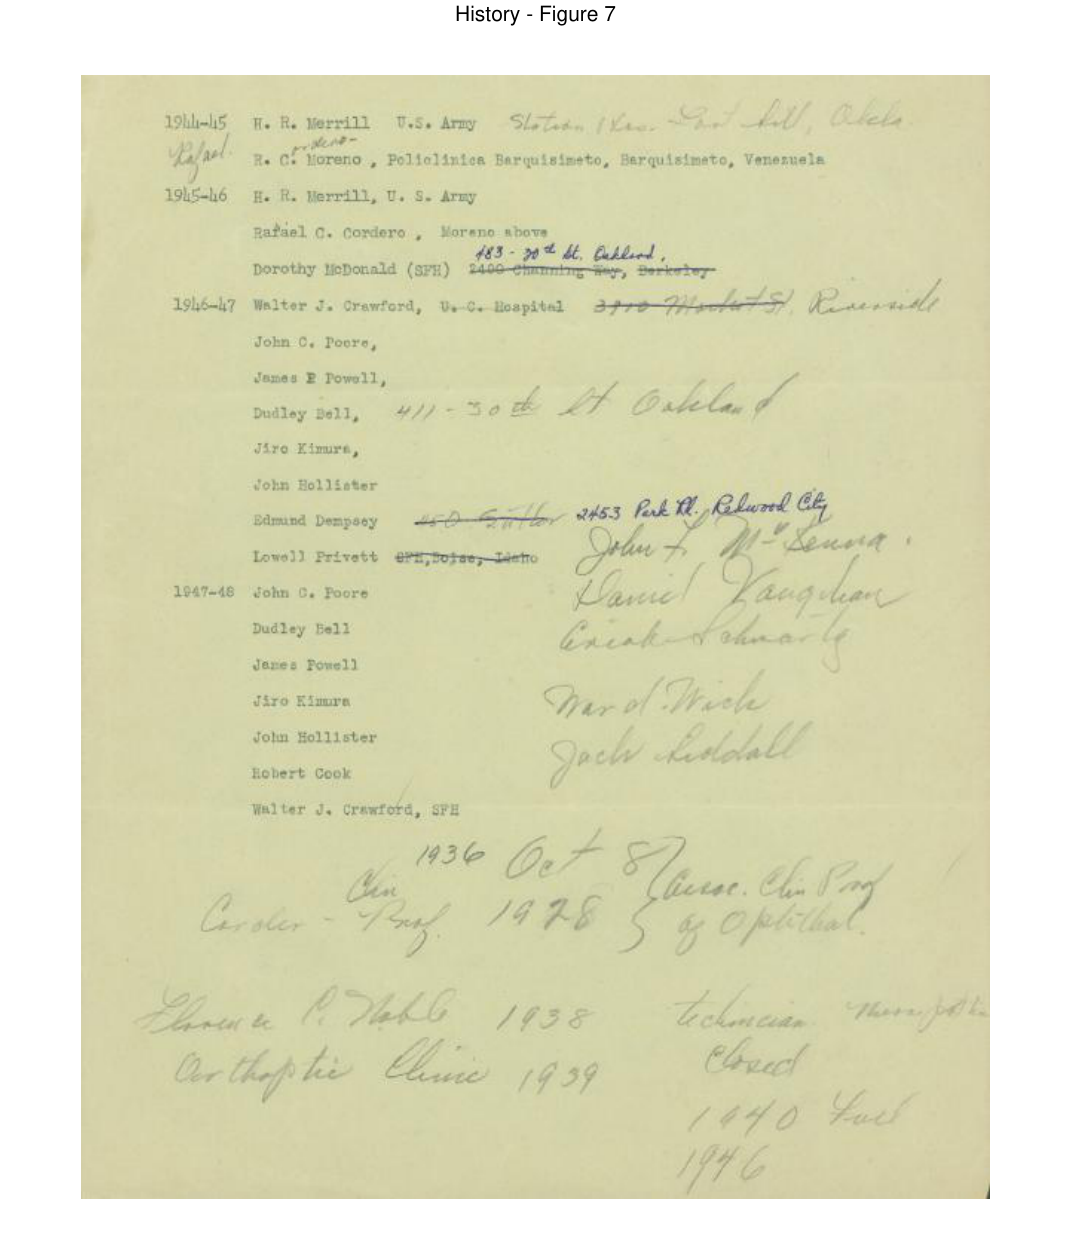 History - Figure 7
1944-45 H. R. Merrill U.S. Army Station Hos. Fort Sill, Okla
Rafael. ordero-
R. C. Moreno , Policlinica Barquisimeto, Barquisimeto, Venezuela
1945-46 H. R. Merrill, U. S. Army
Rafael C. Cordero , Moreno above
483 - 30th St. Oakland.
Dorothy McDonald (SFH) 2400 Channing Way, Berkeley
1946-47 Walter J. Crawford, U. C. Hospital Market St. Riverside
John C. Poore,
James P Powell,
Dudley Bell, 411 - 30th St Oakland
Jiro Kimura,
John Hollister
Edmund Dempsey 450 Sutter 2453 Park Rd. Redwood City
Lowell Privett SFH, Boise, Idaho John F. McKenna.
1947-48 John C. Poore Daniel Vaughan
Dudley Bell Schwartz
James Powell
Jiro Kimura Ward Wick
John Hollister Jack Siddall
Robert Cook
Walter J. Crawford, SFH
1936 Oct 8 Assoc. Clin Prof
Clin
Corder - Prof. 1928 of Ophthal.
Florence C. Noble 1938 technician
Orthoptic Clinic 1939 Closed
1940
1946